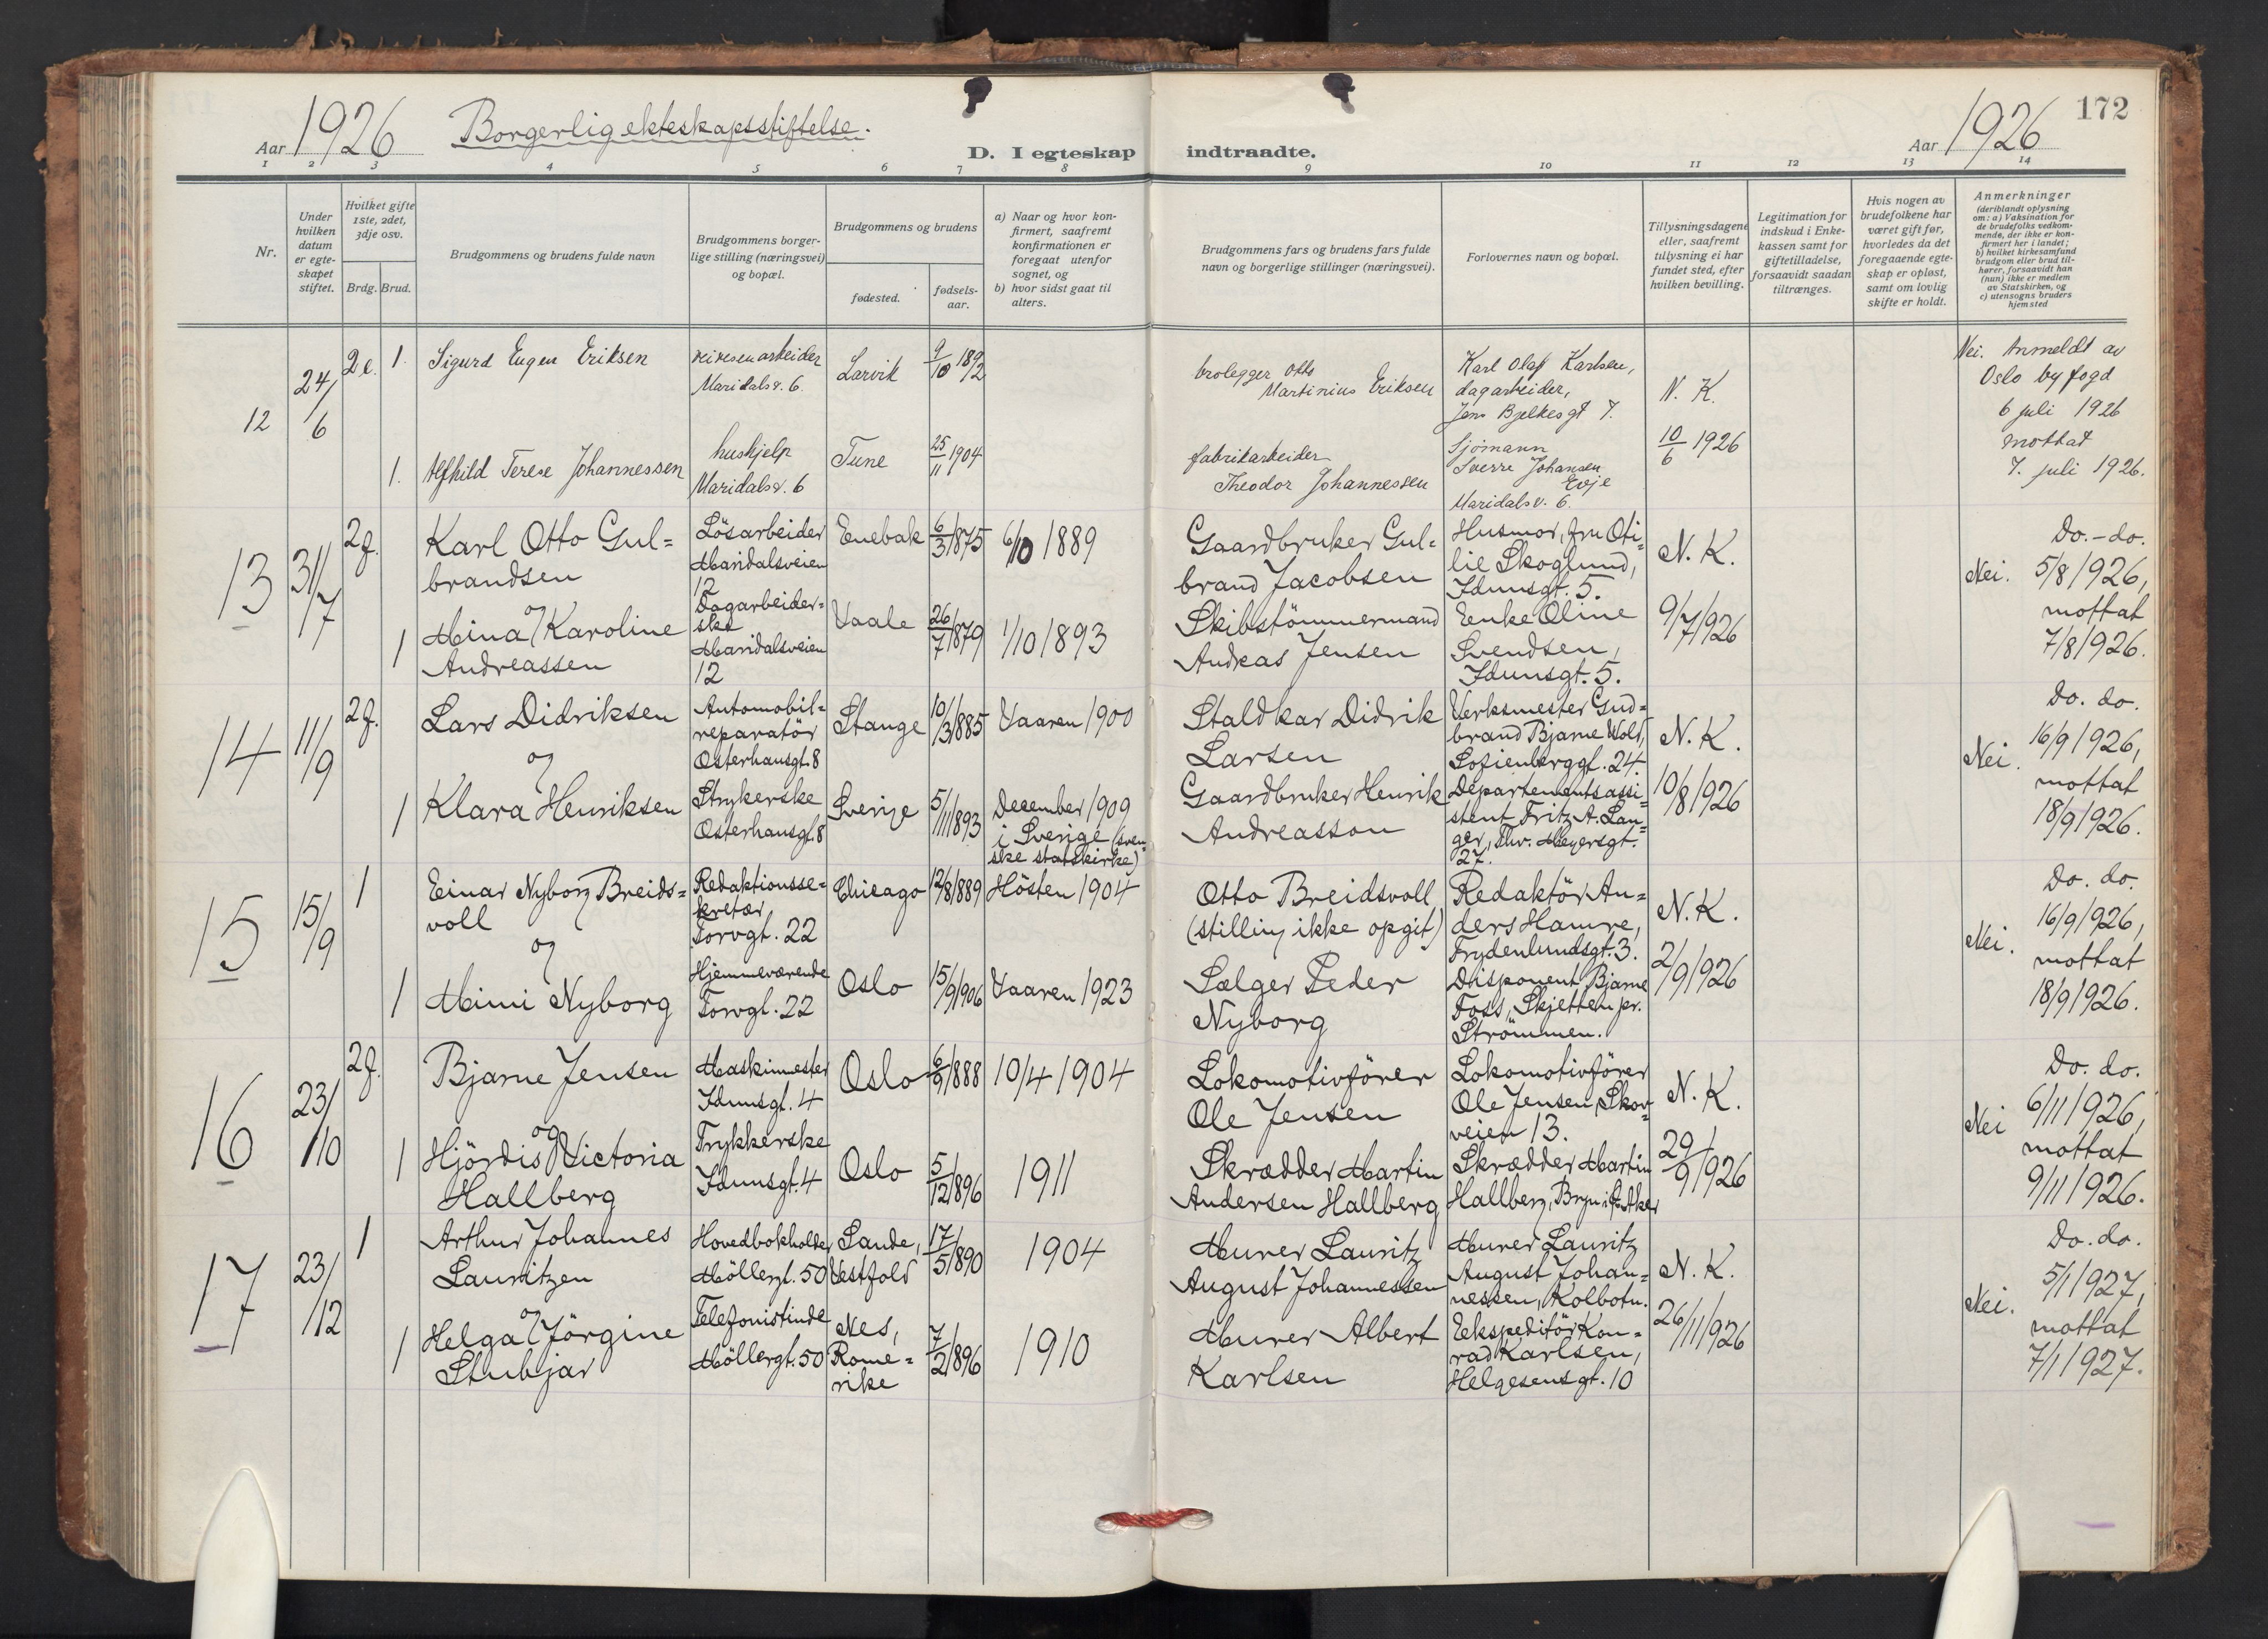 172
Aar 1926 Borgerlig ekteskapsstiftelse.
D. I egteskap indtraadte.
Aar 1926
1 2 3 4 5 6 7 8 9 10 11 12 13 14
Nr.
Under hvilken datum er egte-skapet stiftet.
Hvilket gifte 1ste, 2det, 3dje osv.
Brdg. Brud.
Brudgommens og brudens fulde navn
Brudgommens borger-
lige stilling (næringsvei)
og bopæl.
Brudgommens og brudens
fødested.
fødsels-
aar.
a) Naar og hvor kon-
firmert, saafremt
konfirmationen er
foregaat utenfor
sognet, og
b) hvor sidst gaat til
alters.
Brudgommens fars og brudens fars fulde
navn og borgerlige stillinger (næringsvei).
Forlovernes navn og bopæl.
Tillysningsdagene
eller, saafremt
tillysning ei har
fundet sted, efter
hvilken bevilling.
Legitimation for
indskud i Enke-
kassen samt for
giftetilladelse,
forsaavidt saadan
tiltrænges.
Hvis nogen av
brudefolkene har
været gift før,
hvorledes da det
foregaaende egte-
skap er opløst,
samt om lovlig
skifte er holdt.
Anmerkninger
(deriblandt oplysning
om: a) Vaksination for
de brudefolks vedkom-
mende, der ikke er kon-
firmert her i landet;
b) hvilket kirkesamfund
brudgom eller brud til-
hører, forsaavidt han
(hun) ikke er medlem
av Statskirken, og
c) utensogns bruders
hjemsted
12
24/6
2e. 1.
Sigurd Eugen Eriksen
Maridalsv. 6.
Larvik
9/10 1892
brolegger Otto
Martinius Eriksen
Karl Olaf Karlsen,
dagarbeider,
Jens Bjelkesgt 7.
N. K.
10/6 1926
Nei. Anmeldt av
Oslo byfogd
6 juli 1926
mottat
7. juli 1926.
1.
Alfhild Terese Johannessen
hushjelp
Maridalsv. 6
Tune
25/11 1904
fabrikarbeider
Theodor Johannessen
Sjømann
Sverre Johansen
Evje
Maridalsv. 6.
13
31/7
2g.
Karl Otto Gul=
brandsen
og
Løsarbeider
Maridalsveien
12
Enebak
6/3 1875
6/10 1889
Gaardbruker Gul=
brand Jacobsen
Husmor, fru Oti=
lie Skoglund,
Idunsgt. 5.
N. K.
9/7 1926
Nei.
Do. - do.
5/8 1926,
mottat
7/8 1926.
1
Mina Karoline
Andreassen
Dagarbeider=
ske
Maridalsveien
12
Vaale
26/7 1879
1/10 1893
Skibstømmermand
Andreas Jensen
Enke Oline
Svendsen,
Idunsgt. 5.
14
11/9
2g.
Lars Didriksen
og
Automobil=
reparatør
Osterhausgt. 8
Stange
10/3 1885
Vaaren 1900
Staldkar Didrik
Larsen
Verksmester Gud=
brand Bjarne Wold,
Sofienberggt. 24
N. K.
10/8 1926
Nei.
Do. do.
16/9 1926,
mottat
18/9 1926.
1
Klara Henriksen
Strykerske
Osterhausgt. 8
Sverige
5/11 1893
December 1909
i Sverige (sven=
ske statskirke)
Gaardbruker Henrik
Andreasson
Departementsassi=
stent Fritz A. Lan=
ger, Thv. Meyersgt.
27.
15
15/9
1
Einar Nyborg Breids=
voll
og
Redaktionsse=
kretær,
Torvgt. 22
Chicago
12/8 1889
Høsten 1904
Otto Breidsvoll
(stilling ikke opgit)
Redaktør An=
ders Hamre,
Frydenlundsgt. 3.
N. K.
2/9 1926
Nei.
Do. do.
16/9 1926,
mottat
18/9 1926.
1
Mimi Nyborg
Hjemmeværende
Torvgt. 22
Oslo
15/9 1906
Vaaren 1923
Sælger Peder
Nyborg
Disponent Bjarne
Foss, Skjetten pr.
Strømmen.
16
23/10
2g.
Bjarne Jensen
og
Maskinmester
Idunsgt. 4
Oslo
6/9 1888
10/4 1904
Lokomotivfører
Ole Jensen
Lokomotivfører
Ole Jensen, Skov=
veien 13.
N. K.
29/9 1926
Nei
Do. do.
6/11 1926,
mottat
9/11 1926.
1
Hjørdis Victoria
Hallberg
Trykkerske
Idunsgt. 4
Oslo
5/12 1896
1911
Skrædder Martin
Andersen Hallberg
Skrædder Martin
Hallberg, Bryn
17
23/12
1
Arthur Johannes
Lauritzen
og
Hovedbokholder
Møllergt. 50
Sande,
Vestfold
17/5 1890
1904
Murer Lauritz
August Johannessen
Murer Lauritz
August Johan=
nessen, Kolbotn.
N. K.
26/11 1926
Nei.
Do. do.
5/1 1927,
mottat
7/1 1927.
1
Helga Jørgine
Stubjar
Telefonistinde
Møllergt. 50
Nes,
Rome=
rike
7/2 1896
1910
Murer Albert
Karlsen
Ekspeditør Kon=
rad Karlsen,
Helgesensgt. 10